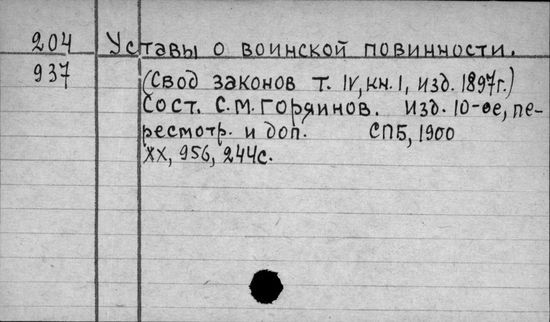 204 Уставы о воинской повинности.
937
(Свод законов т. IV, кн. I, изд. 1897г.)
Сост. С.М. Горяинов. Изд. 10-ое, пе-
ресмотр. и доп. СПБ, 1900
XX, 956, 244с.